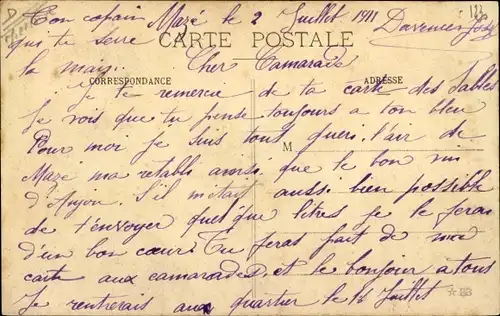 Ton copain Mazé le 2 Juillet 1911
qui te serre
la main
CARTE POSTALE
Cher Camarade
CORRESPONDANCE ADRESSE
Je te remercie de ta carte des Sables
Je vois que tu pense toujours a ton bleu
Pour moi je suis tous gueri. l'air de
M
Mazé ma retabli ainsi que le bon vin
d'Anjou. S'il m'etait aussi bien possible
de t'envoyer quel'que litres je le ferai
d'un bon cœur. Tu feras part de ma
carte aux camarades et le bonjour a tous
Je rentrerais au quartier le 16 Juillet